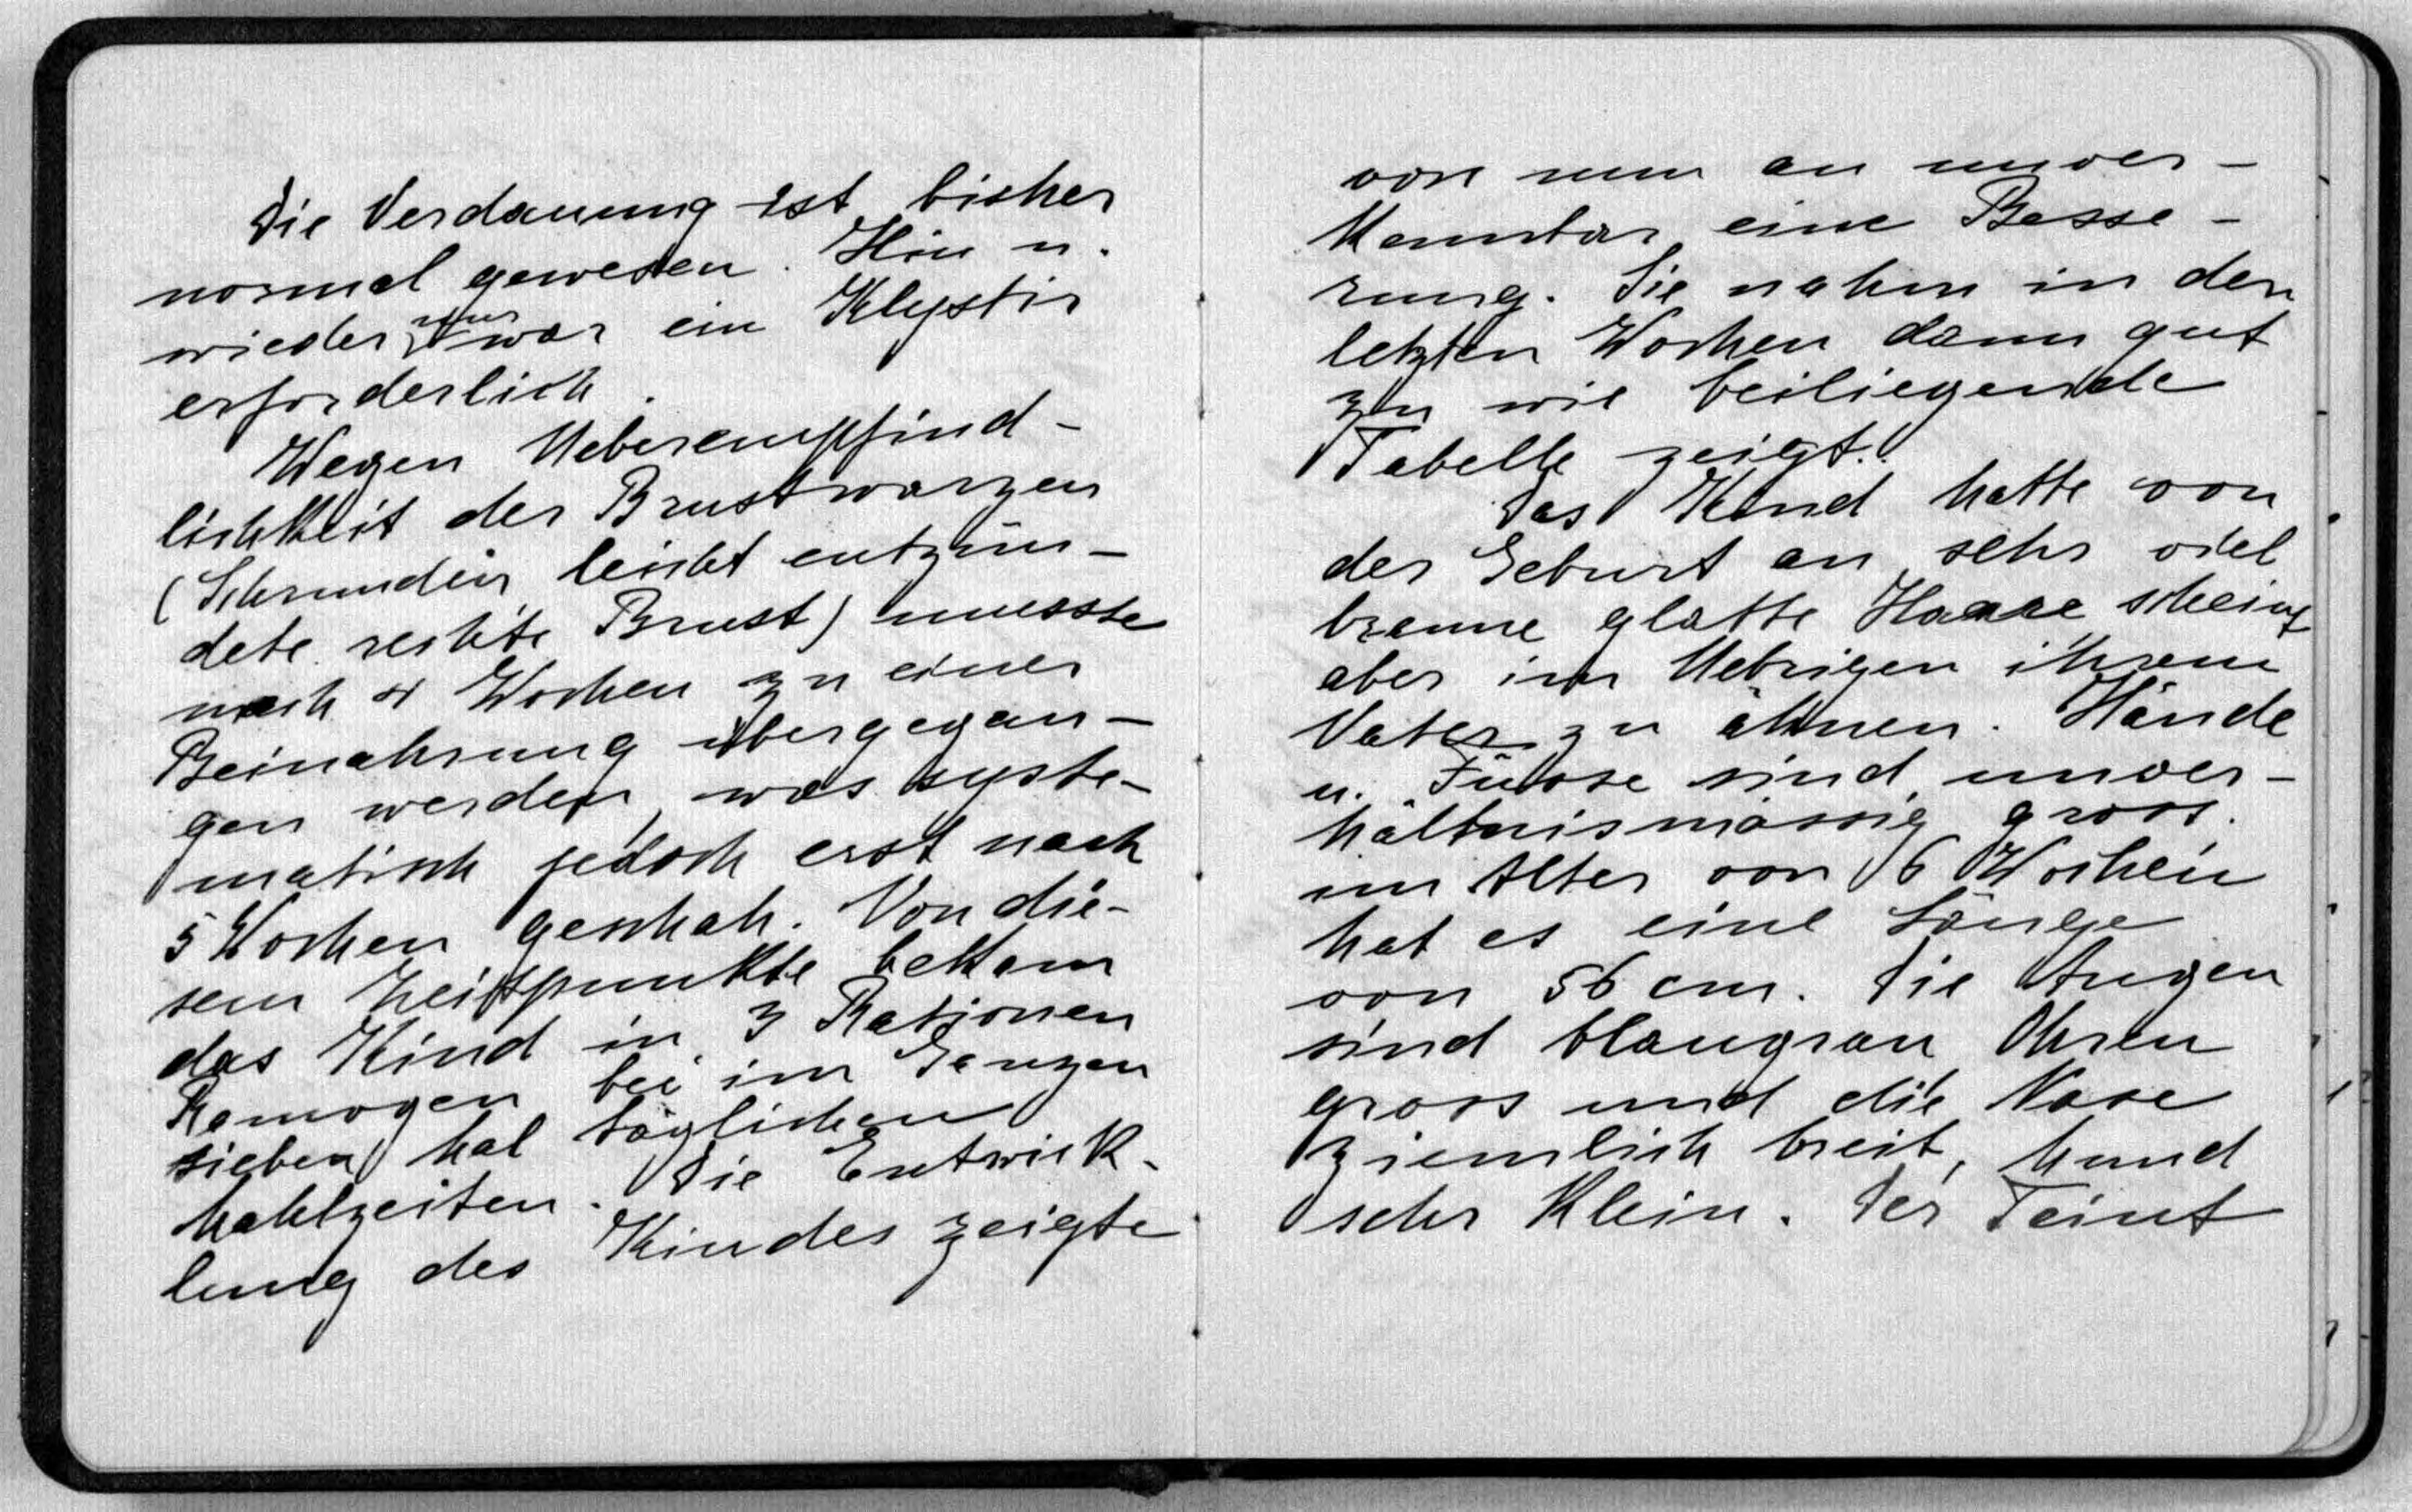 Die Verdauung ist bisher
normal gewesen. Hin u.
wieder nur war ein Klystir
erforderlich.
Wegen Ueberempfind-
lichkeit der Brustwarzen
(Schrunden, leicht entzün-
dete rechte Brust) musste
nach 4 Wochen zu einer
Beinahrung übergegan-
gen werden, was syste-
matisch jedoch erst nach
5 Wochen geschah. Von die-
sem Zeitpunkte bekam
das Kind in 3 Rationen
Ramogen bei im Ganzen
sieben Mal täglichen
Mahlzeiten. Die Entwick-
lung des Kindes zeigte
von nun an unver-
kennbar eine Besse-
rung. Sie nahm in den
letzten Wochen dann gut
zu wie beiliegende
Tabelle zeigt.
Das Kind hatte von
der Geburt an sehr viel
braune glatte Haare scheint
aber im Uebrigen ihrem
Vater zu ähnen. Hände
u. Füsse sind unver-
hältnismässig gross.
im Alter von 6 Wochen
hat es eine Länge
von 56 cm. Die Augen
sind blaugrau Ohren
gross und die Nase
ziemlich breit, Mund
sehr klein. Der Teint